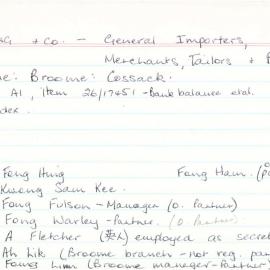 + Co. - General Importers,
Merchants, Tailors +
: Broome: Cossack.
A1, Item 26/17451 - Bank balance etal.
dex.
Fong Hing Fong Ham. (
Kwong Sam Kee.
Fong Fulson - Manager (o. Partner)
Fong Warley - Partner. (o Partner)
A Fletcher (英人) employed as secret
Ah Lik (Broome branch - not reg. par
Fong Lim (Broome manager - Partner)